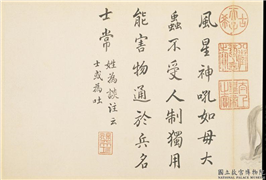 風星神吼如母大
蟲不受人制獨用
能害物通於兵名
士常
姓為談注云
士或為吐
國立故宮博物院
NATIONAL PALACE MUSEUM